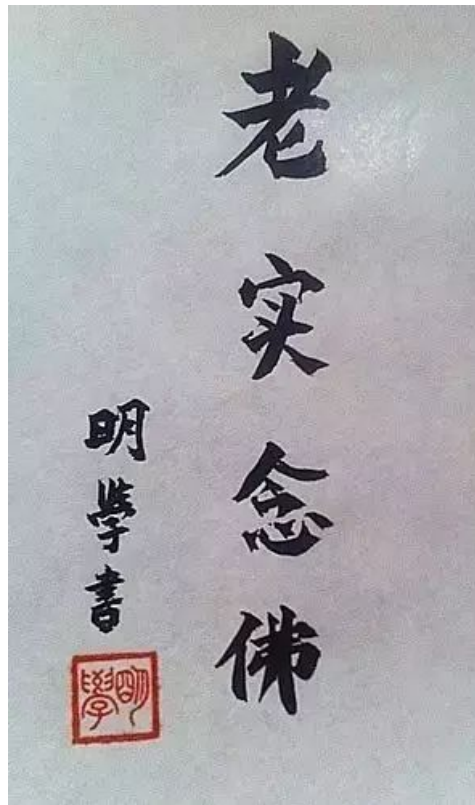 老实念佛
明學書
明學